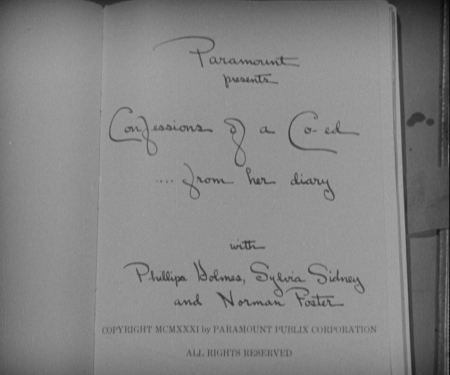 Paramount
presents
Confessions of a Co-ed
.... from her diary
with
Phillips Holmes, Sylvia Sidney
and Norman Foster
COPYRIGHT MCMXXXI by PARAMOUNT PUBLIX CORPORATION
ALL RIGHTS RESERVED